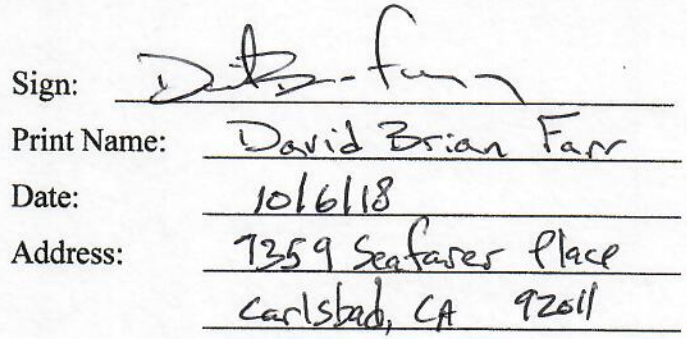 Sign: David Brian Farr
Print Name: David Brian Farr
Date: 10/6/18
Address: 7359 Seafarer Place
Carlsbad, CA 92011